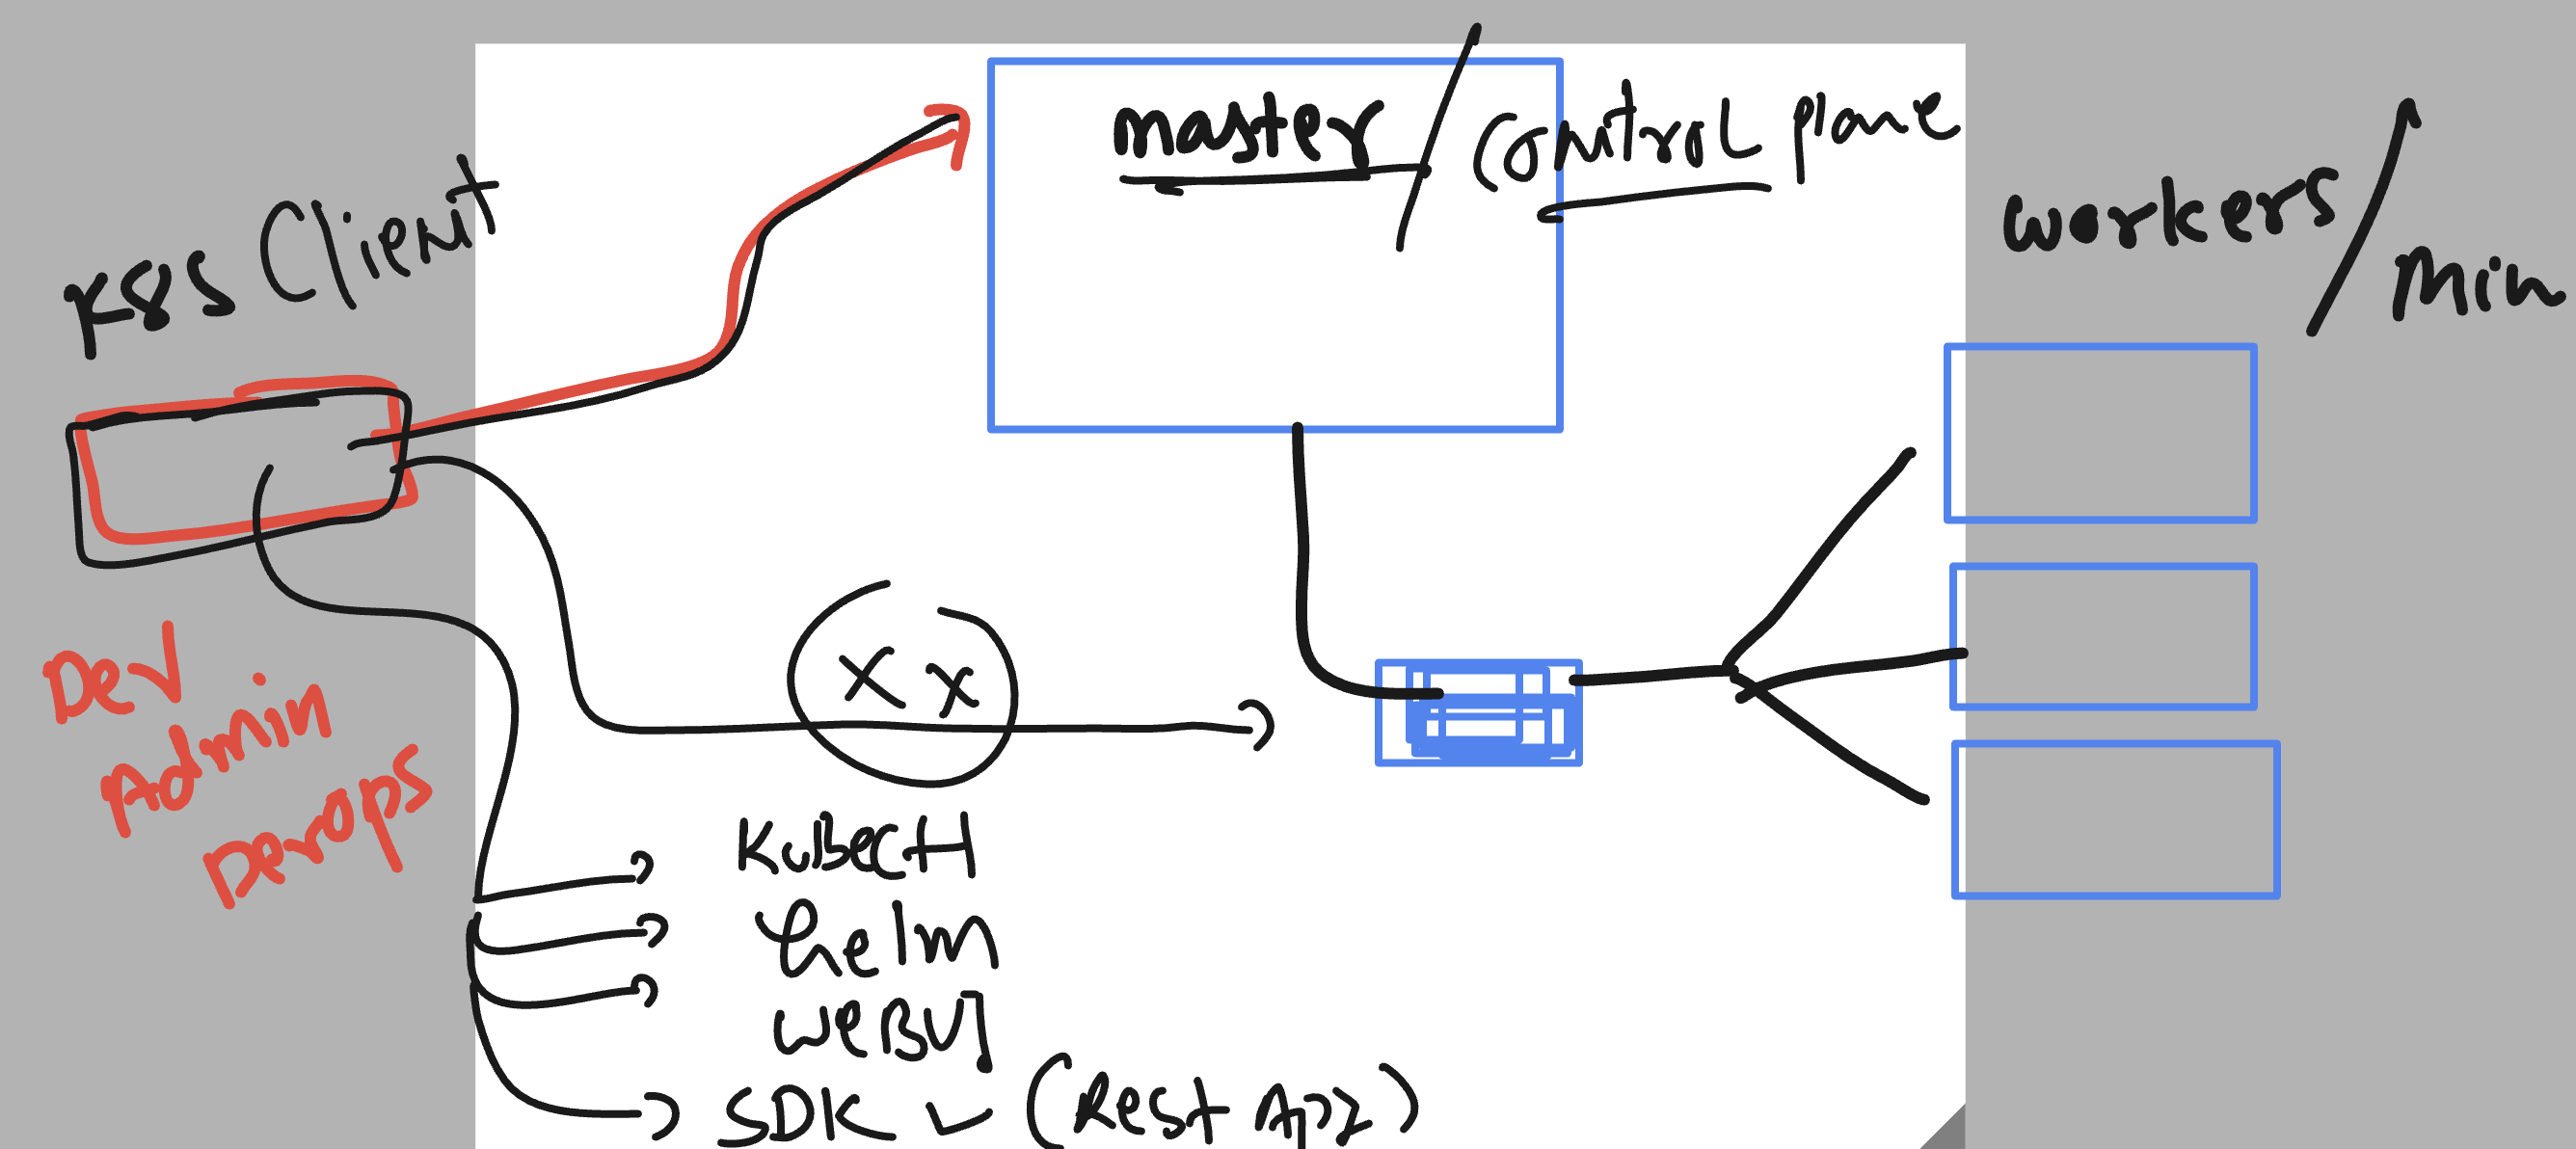 K8S Client
master / control plane
workers / Min
Dev
Admin
Devops
X X
Kubectl
helm
WeBUI
SDK (Rest API)